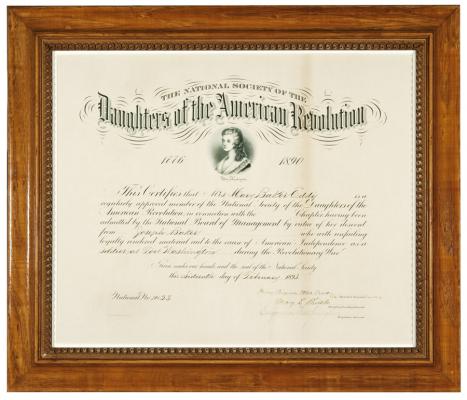 THE NATIONAL SOCIETY OF THE
Daughters of the American Revolution
1776 1890
This Certifies that Mrs Mary Baker Eddy is a
regularly approved member of the National Society of the Daughters of the
American Revolution, in connection with the Chapter, having been
admitted by the National Board of Management by virtue of her descent
from Joseph Baker who with unfailing
loyalty rendered material aid to the cause of American Independence as a
during the Revolutionary War
Given under our hands and the seal of the National Society
this sixteenth day of February 1893
National No.